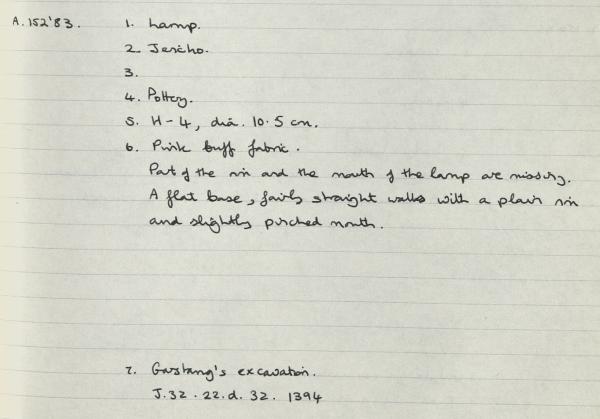 A.152'83. 1. Lamp.
2. Jericho.
3.
4. Pottery.
5. H-4, dia. 10.5 cm.
6. Pink buff fabric.
Part of the rim and the mouth of the lamp are missing.
A flat base, fairly straight walls with a plain rim
and slightly pinched mouth.
7. Garstang's excavation.
J.32.22.d.32. 1394